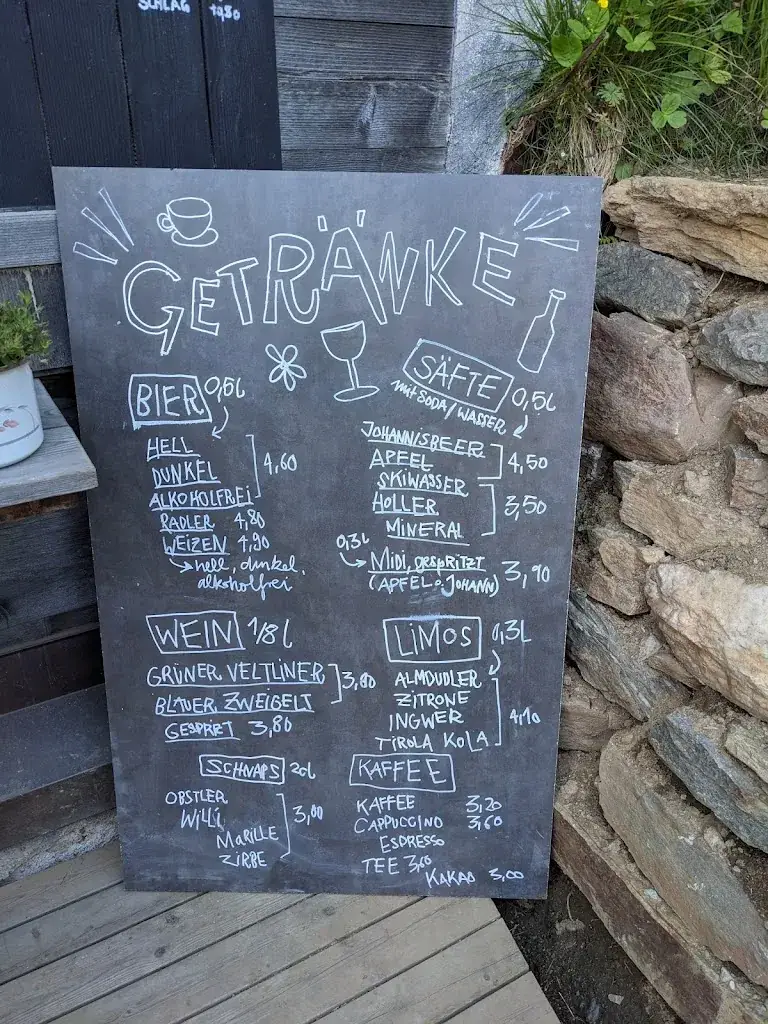 SCHLAG 10,80
GETRÄNKE
BIER 0,5l
HELL
DUNKEL
ALKOHOLFREI
4,60
RADLER 4,80
WEIZEN 4,90
hell, dunkel,
alkoholfrei
SÄFTE
mit SODA/WASSER 0,5l
JOHANNISBEER
APFEL
4,50
SKIWASSER
HOLLER
MINERAL
3,50
0,3l
MIDI, gespritzt
(APFEL o. JOHANN) 3,90
WEIN 1/8 l
GRÜNER VELTLINER
BLAUER ZWEIGELT
3,80
GESPRIRT 3,80
LIMOS 0,3l
ALMDUDLER
ZITRONE
INGWER
TIROLA KOLA
4,10
SCHNAPS 2cl
OBSTLER
WILLI
MARILLE
ZIRBE
3,00
KAFFEE
KAFFEE 3,20
CAPPUCCINO 3,60
ESPRESSO
TEE 3,60
KAKAO 3,00